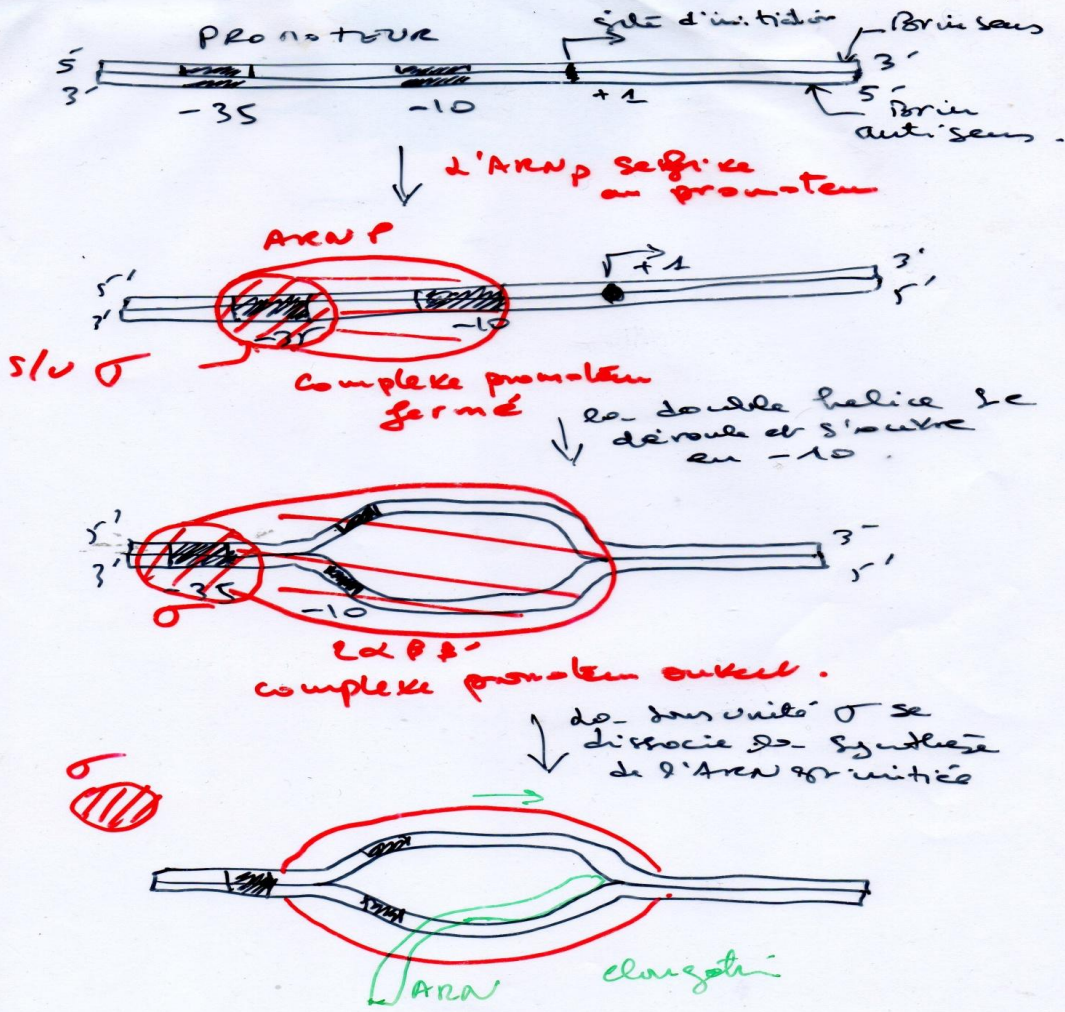 PROMOTEUR
site d'initiation
Brin sens
5'
3'
3'
5'
-35
-10
+1
Brin
antisens.
L'ARNp se fixe
au promoteur
ARN P
+1
5'
3'
3'
5'
-35
-10
S/U σ
complexe promoteur
fermé
la double helice se
déroule et s'ouvre
en -10.
5'
3'
3'
5'
-35
-10
σ
2α β β'
complexe promoteur ouvert.
La sous unité σ se
dissocie la synthèse
de l'ARN est initiée
σ
ARN
elongation